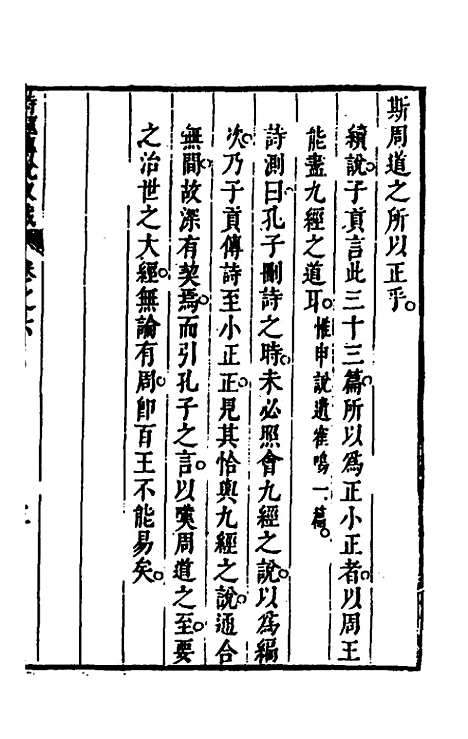 斯周道之所以正乎。
續說。子貢言此三十三篇。所以爲正小正者。以周王
能盡九經之道耳。惟申說遺雀鳴一篇。
詩測曰。孔子刪詩之時。未必照會九經之說。以爲編
次。乃子貢傳詩至小正。正見其恰與九經之說。通合
無間。故深有契焉。而引孔子之言。以嘆周道之至要
之治世之大經。無論有周。卽百王不能易矣。
卷之六